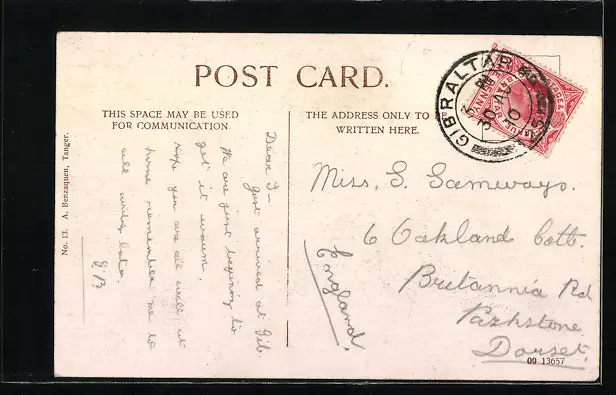 POST CARD.
THIS SPACE MAY BE USED
FOR COMMUNICATION.
THE ADDRESS ONLY TO
WRITTEN HERE.
No. 13. A. Benzaquen, Tanger.
Dear J—
Just arrived at Gib.
We are just begining to
get it warm.
Hope you are all well at
home remember me to
all
JB
Miss. S. Samways.
6 Oakland Cott.
Britannia Rd
Parkstone
Dorset.
England.
GIBRALTAR
AU 30
10
09 13657